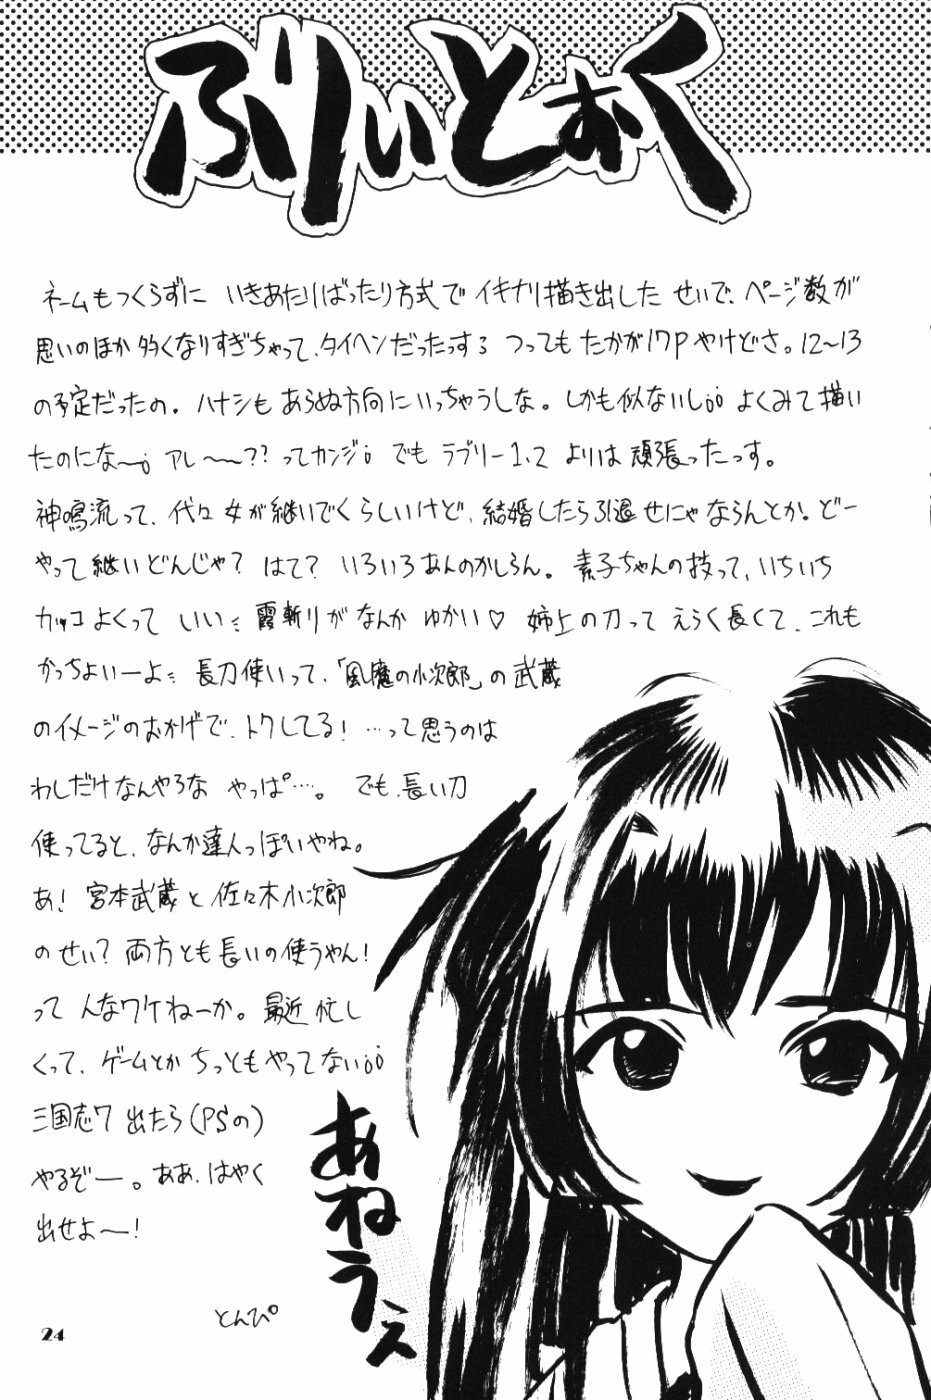 ふりいとおく
ネームもつくらずに いきあたりばったり方式で イキナリ描き出した せいで、ページ数が
思いのほか 多くなりすぎちゃって、タイヘンだったっする つっても たかが17P やけどさ。12〜13
の予定だったの。ハナシも あらぬ方向に いっちゃうしな。しかも似ないし。。 よくみて描い
たのにな〜。 アレ〜〜?? ってカンジ。 でも ラブリー1、2 よりは 頑張ったっす。
神鳴流って、代々 女が継いでくらしいけど、結婚したら引退せにゃならんとか。どー
やって 継いどんじゃ? はて? いろいろあんのかしらん。 素子ちゃんの技って、いちいち
カッコ よくって いいミ 霞斬りがなんか ゆかい♡ 姉上の刀って えらく長くて、これも
かっちょいーよミ 長刀使いって、「風魔の小次郎」の武蔵
のイメージのおかげで、トクしてる! …って思うのは
わしだけなんやろな やっぱ…。 でも、長い刀
使ってると、なんか達人っぽいやね。
あ! 宮本武蔵と 佐々木小次郎
のせい? 両方とも長いの使うやん!
って んなワケねーか。最近 忙し
くって、ゲームとか ちっともやってない。。
三国志7 出たら(PSの)
やるぞー。ああ、はやく
出せよ〜!
とんぴ
あねうえ
24